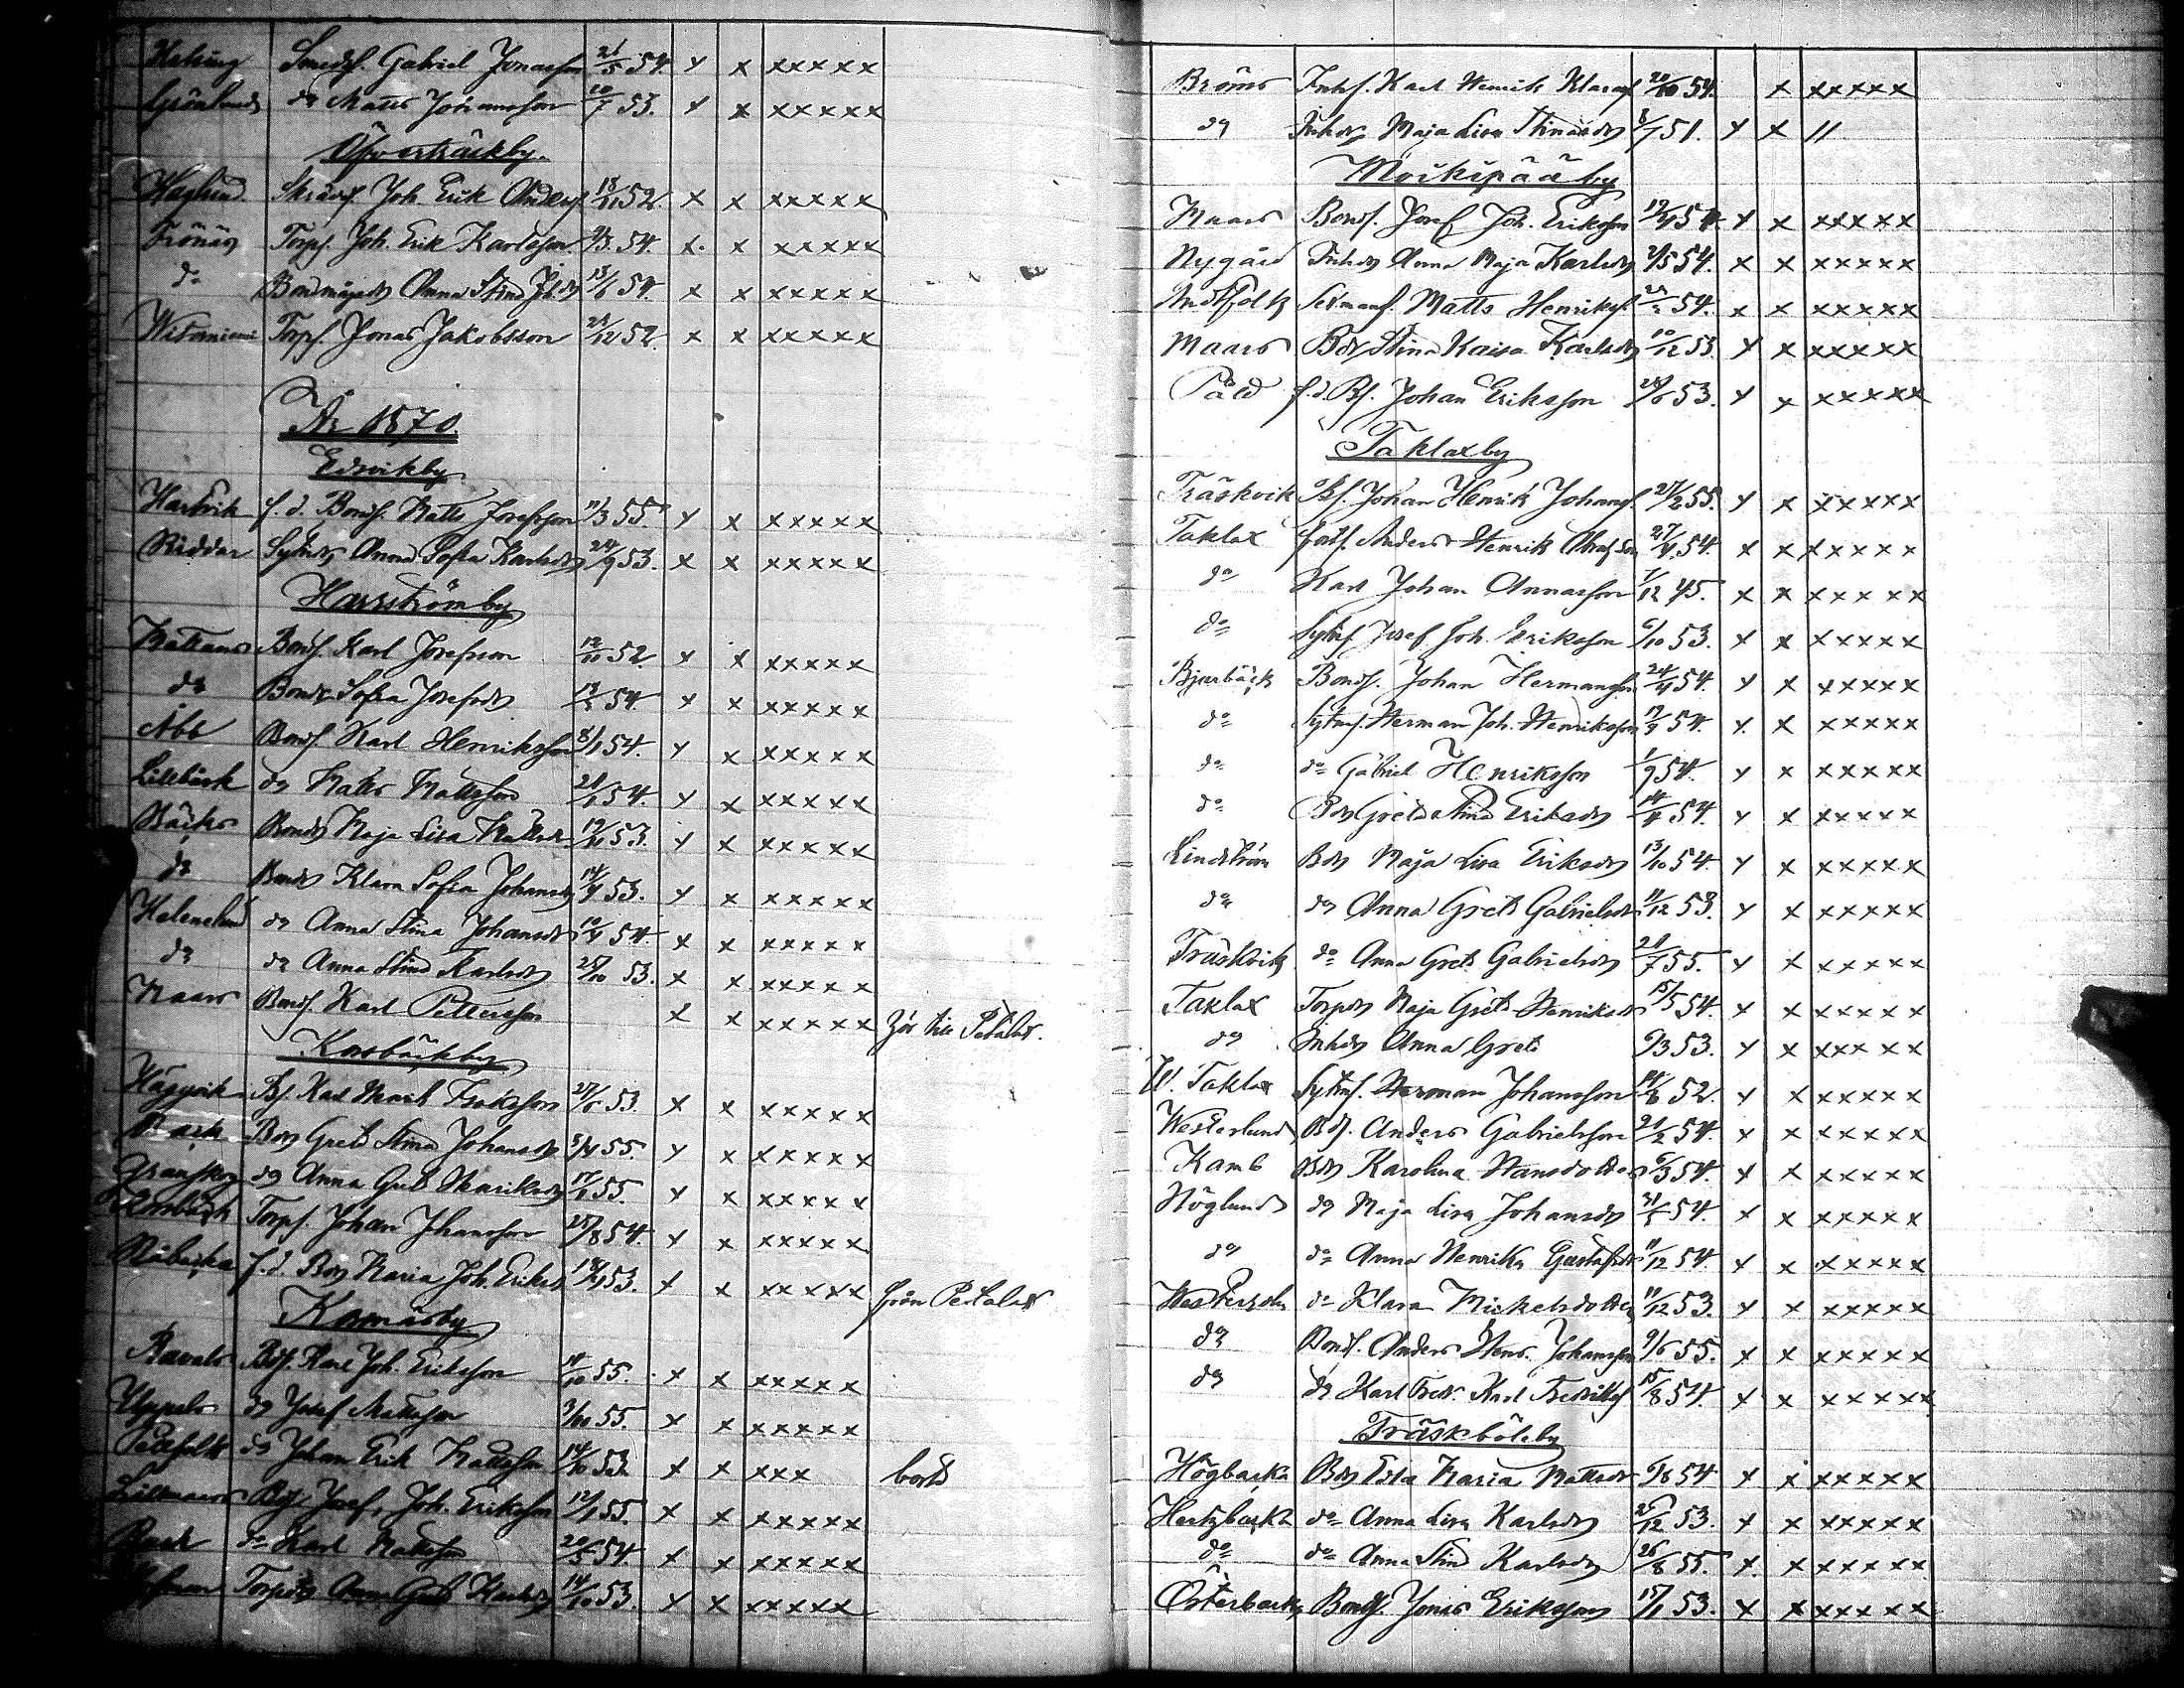 Helsing Smedsf. Gabriel Jonasson 21/5 54. x x xxxxx
Grönlund do Matts Johansson 10/7 53. x x xxxxx
Öfverträskby.
Haglund Skrädf. Joh. Erik Andersf. 18/11 52. x x xxxxx
Frönäs Torpf. Joh. Erik Karlsson 2/3 54. x. x xxxxx
do Anna Stina 13/6 54. x x xxxxx
Torpf. Jonas Jakobsson 21/12 52. x x xxxxx
År 1870.
Edsvikby
Hartvik f. d. Bonds. Matts Josefsson 11/3 55. x x xxxxx
Riddar Anna Sofia Karlsdr 24/9 53. x x xxxxx
Harrströmby
Mattans Bonds. Karl Josefsson 12/10 52 x x xxxxx
do Bondr Sofia Josefsdr 54 x x xxxxx
Abb Bonds. Karl Henriksson 8/1 54. x x xxxxx
Lillbäck do Matts Mattsson 28/1 54. x x xxxxx
Bäcks Bonds Maja Lisa Mattsdr 19/11 53. x x xxxxx
do Bonds Klara Sofia Johansdr 14/4 53. x x xxxxx
Helenelund do Anna Stina Johansdr 10/4 54. x x xxxxx
do do Anna Stina Karlsdr 25/10 53. x x xxxxx
Maars Bonds. Karl Pettersson x x xxxxx för till Petalax.
Korsbäckby
Häggvik Bf. Karl Henrik Isaksson 27/6 53. x x xxxxx
Bäck Bdr Greta Stina Johansdr 3/4 55. x x xxxxx
Granskog do Anna Greta Henriksdr 17/1 55. x x xxxxx
Korsbäck Torpf. Johan Johansson 25/8 54. x x xxxxx
f. d. Bdr Maria Joh. Eriksdr 18/4 53. x x xxxxx från Petalax
Kornäsby
Ravals Bdf. Karl Joh. Eriksson 14/10 55. x x xxxxx
Uppels do Josef Mattsson 3/10 55. x x xxxxx
do Johan Erik Mattsson 14/10 x x xxx borta
Lillmaars Bdf. Josef Joh. Eriksson 12/1 55. x x xxxxx
Back do Karl Mattsson 20/5 54. x x xxxxx
Torpdr Anna Greta Karlsdr 14/10 53. x x xxxxx
Bröms Inhf. Karl Henrik Klarasf 20/10 54. x xxxxx
do Inhdr Maja Lisa Stinasdr 8/7 51. x x 11
Moikipää by
Maars Bonds. Josef Joh. Eriksson 19/4 54 x x xxxxx
Nygård Inhdr Anna Maja Karlsdr 2/5 54. x x xxxxx
Matts Henriksf. 54. x x xxxxx
Maars Bdr Stina Kaisa Karlsdr 10/12 53 x x xxxxx
Påld f. d. Bf. Johan Eriksson 28/6 53. x x xxxxx
Taklaxby
Träskvik Bf. Johan Henrik Johansf. 27/2 55. x x xxxxx
Taklax Anders Henrik 27/4 54. x x xxxxx
do Karl Johan Annasson 1/12 45. x x xxxxx
do Sytnf. Josef Joh. Eriksson 6/10 53. x x xxxxx
Bjurbäck Bonds. Johan Hermansson 24/4 54. x x xxxxx
do Sytnf. Herman Joh. Henriksson 17/9 54. x. x xxxxx
do do Gabriel Henriksson 1/9 54. x x xxxxx
do Bdr Greta Stina Eriksdr 14/4 54. x x xxxxx
Lindström Bdr Maja Lisa Eriksdr 13/10 54. x x xxxxx
do do Anna Greta Gabrielsdr 11/12 53. x x xxxxx
Träskvik do Anna Greta Gabrielsdr 21/7 55. x x xxxxx
Taklax Torpdr Maja Greta Henriksdr 15/5 54. x x xxxxx
do Inhdr Anna Greta 6/3 53. x x xxxxx
W. Taklax Sytnf. Herman Johansson 14/6 52. x x xxxxx
Westerlund Bdf. Anders Gabrielsson 21/2 54. x x xxxxx
Kamb Bdr Karolina Hansdotter 6/3 54. x x xxxxx
Höglund do Maja Lisa Johansdr 21/5 54. x x xxxxx
do do Anna Henrika Gustafsdr 11/12 54. x x xxxxx
Westerholm do Klara Mickelsdotter 11/12 53. x x xxxxx
do Bonds. Anders Henr. Johansson 9/6 55. x x xxxxx
do do Karl Fredr. Karl Fredriksf. 15/8 54. x x xxxxx
Träskböleby
Högbacka Bdr Maria Mattsdr 6/8 54 x x xxxxx
Hertzbacka do Anna Lisa Karlsdr 25/12 53. x x xxxxx
do do Anna Stina Karlsdr 26/8 55. x. x xxxxx
Österback Bonds. Jonas Eriksson 15/1 53. x x xxxxx